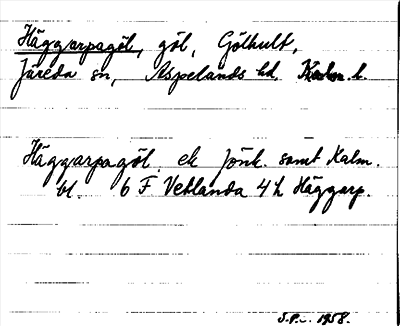 Häggarpagöl, göl, Gölhult,
Järeda sn, Aspelands hd, Kalm. l.
Häggarpagöl. ek Jönk. samt Kalm.
bl. 6 F Vetlanda 4 h Häggarp.
S.P. 1958.